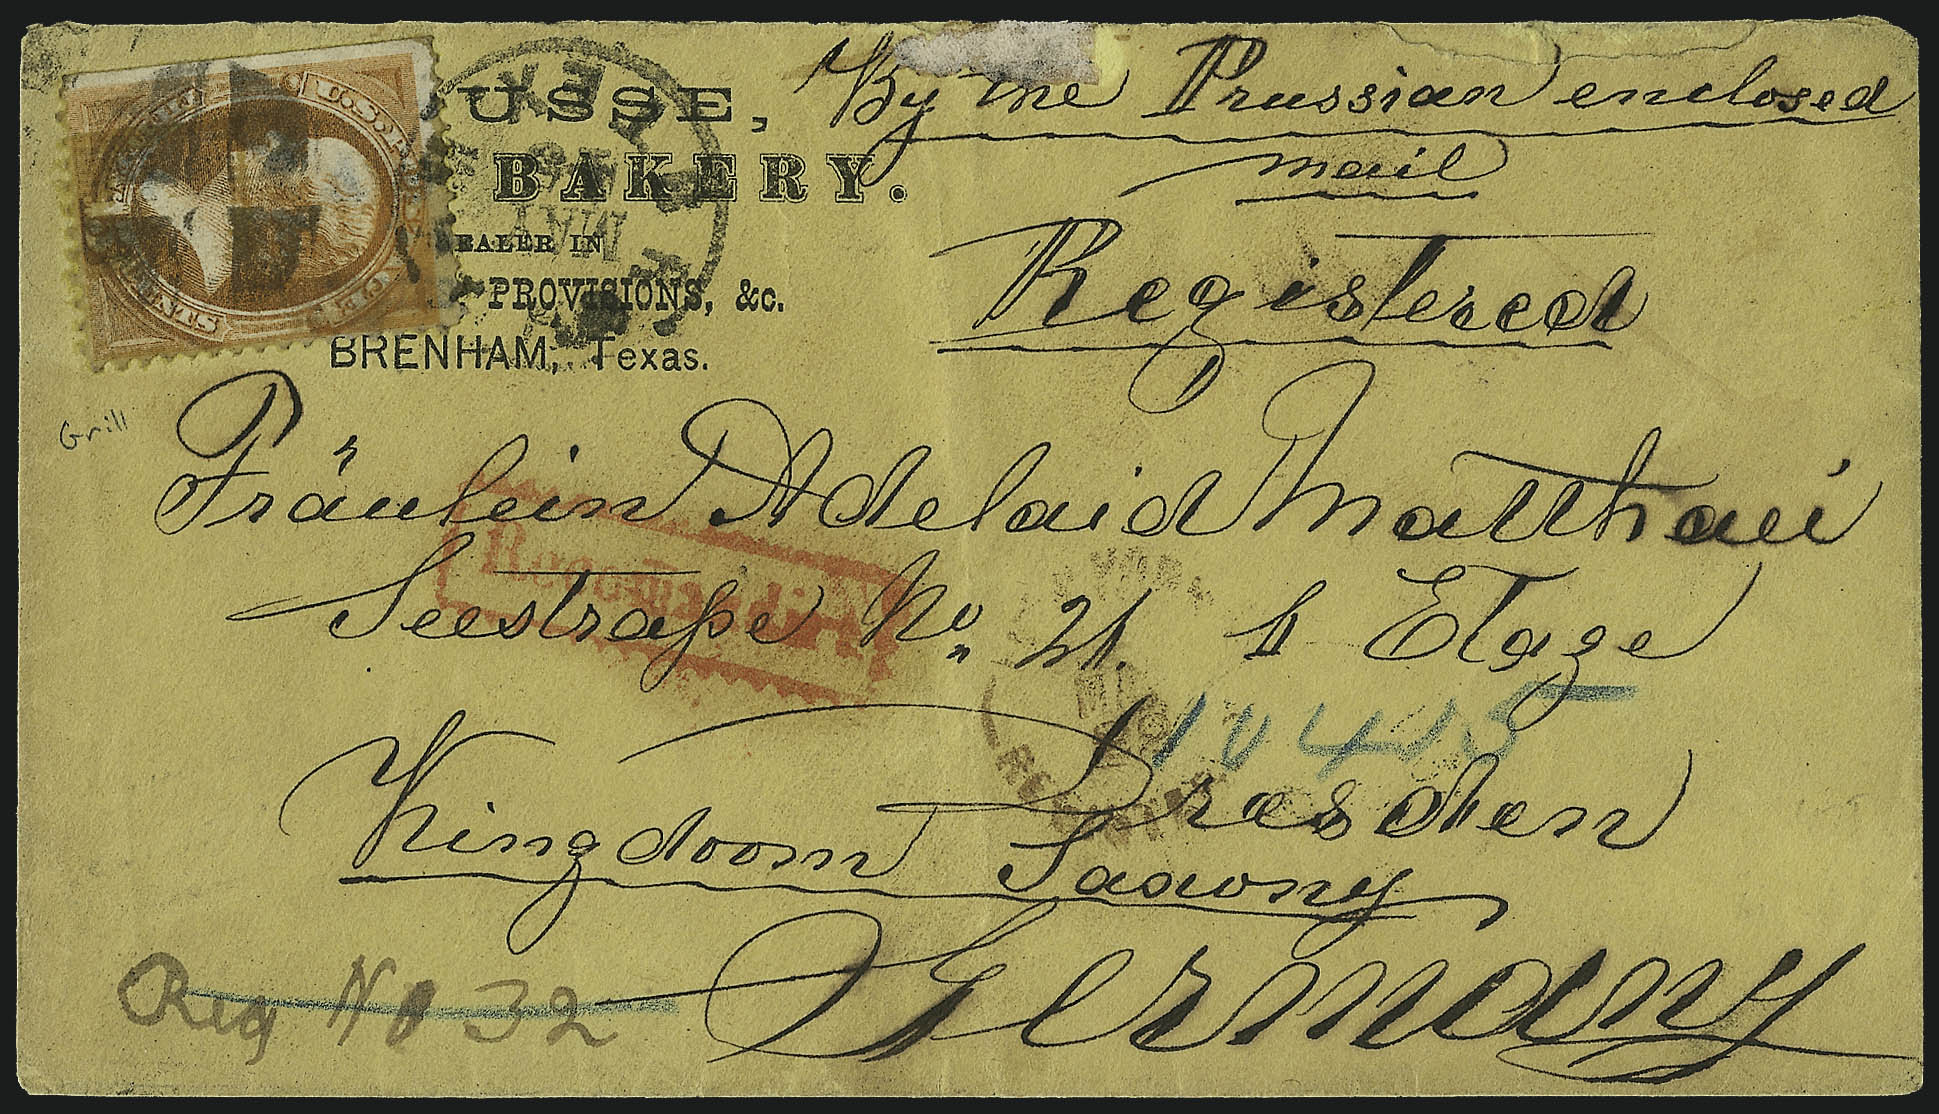 USSE,
BAKERY.
EALER IN
PROVISIONS, &c.
BRENHAM, Texas.
By the Prussian enclosed
mail
Registered
Grill
Fräulein Adelaid Matthaei
Seestraße No. 21. Etage
10415
Dresden
Kingdoom Saxony
Germany
Reg No 32
U.S. PO
CENTS
MAY
YORK